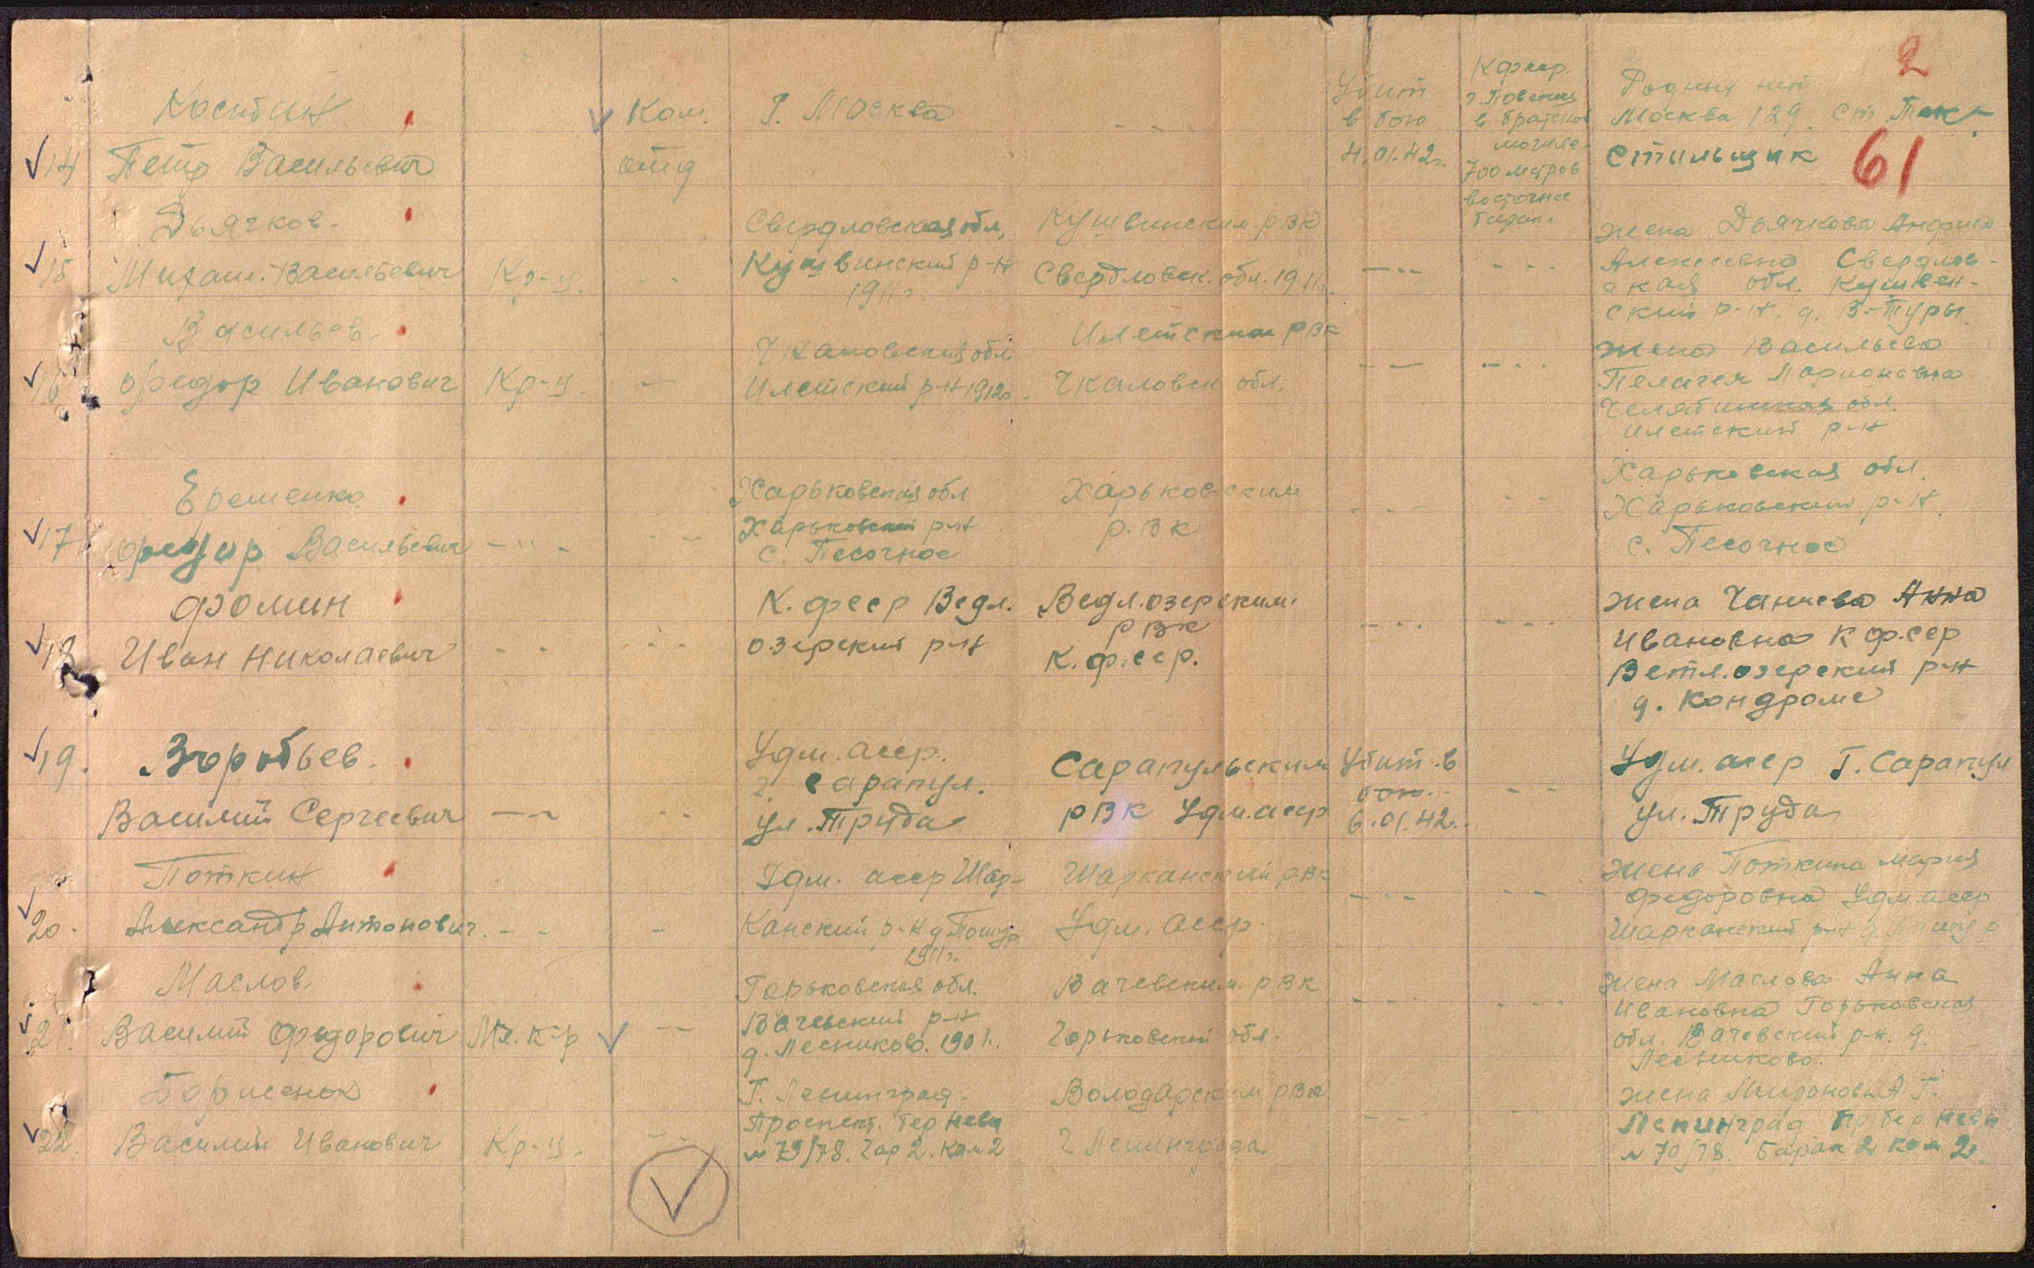 2
61
14 Костин
Петр Васильевич
Ком.
отд
г. Москва
- -
Убит
в бою
4.01.42г.
Кфсср.
г. Повенец
в братской
могиле
700 метров
восточнее
Родных нет
Москва 129. ст.
стильщик
15 Дьячков
Михаил Васильевич
Кр-ц.
Свердловская обл,
Кушвинский р-н
1911г.
Кушвинским РВК
Свердловск. обл. 1911г.
жена Дьячкова
Алексеевна Свердлов-
ская обл. Кушвен-
ский р-н. д. В-Туры
16 Васильев
Федор Иванович
Кр-ц
Чкаловская обл
Илетский р-н 1912г.
Илетским РВК
Чкаловск обл.
жена Васильева
Пелагея
обл.
Илетский р-н
17 Еременко
Федор Васильевич
- " -
Харьковская обл
Харьковский р-н
с. Песочное
Харьковским
Р.В К
Харьковская обл.
Харьковский р-н.
с. Песочное
18 Фомин
Иван Николаевич
К. фсср Ведл.
озерский р-н
Ведл.озерским
РВК
К.ф.сср.
жена Чаннева Анна
Ивановна К ф.сср
Ветл.озерский р-н
д. Кондроме
19. Воробьев
Василий Сергеевич
Удм. асср.
г Сарапул.
ул. Труда
Сарапульским
РВК Удм.асср
Убит в
бою.
6.01.42г.
Удм. асср г. Сарапул
ул. Труда
20. Поткин
Александр Антонович
Удм. асср Шар-
канский р-н д
1911г.
Шарканский РВК
Удм. асср.
жена Поткина Мария
Федоровна Удм асср
Шарканский р-н д.
21. Маслов
Василий Федорович
Мл. к-р
Горьковская обл.
Вачевский р-н
д. Лесниково. 1901г.
Вачевским РВК
Горьковской обл.
жена Маслова Анна
Ивановна Горьковская
обл. Вачевский р-н. д.
Лесниково.
22. Борисенок
Василий Иванович
Кр-ц.
г. Ленинград.
Проспект. бер невы
№ 79/78. бар 2. ком 2
Володарским РВК
г Ленинграда
жена Миронова А Г.
Ленинград Пр бер невы
№ 70/78. барак 2 ком 2